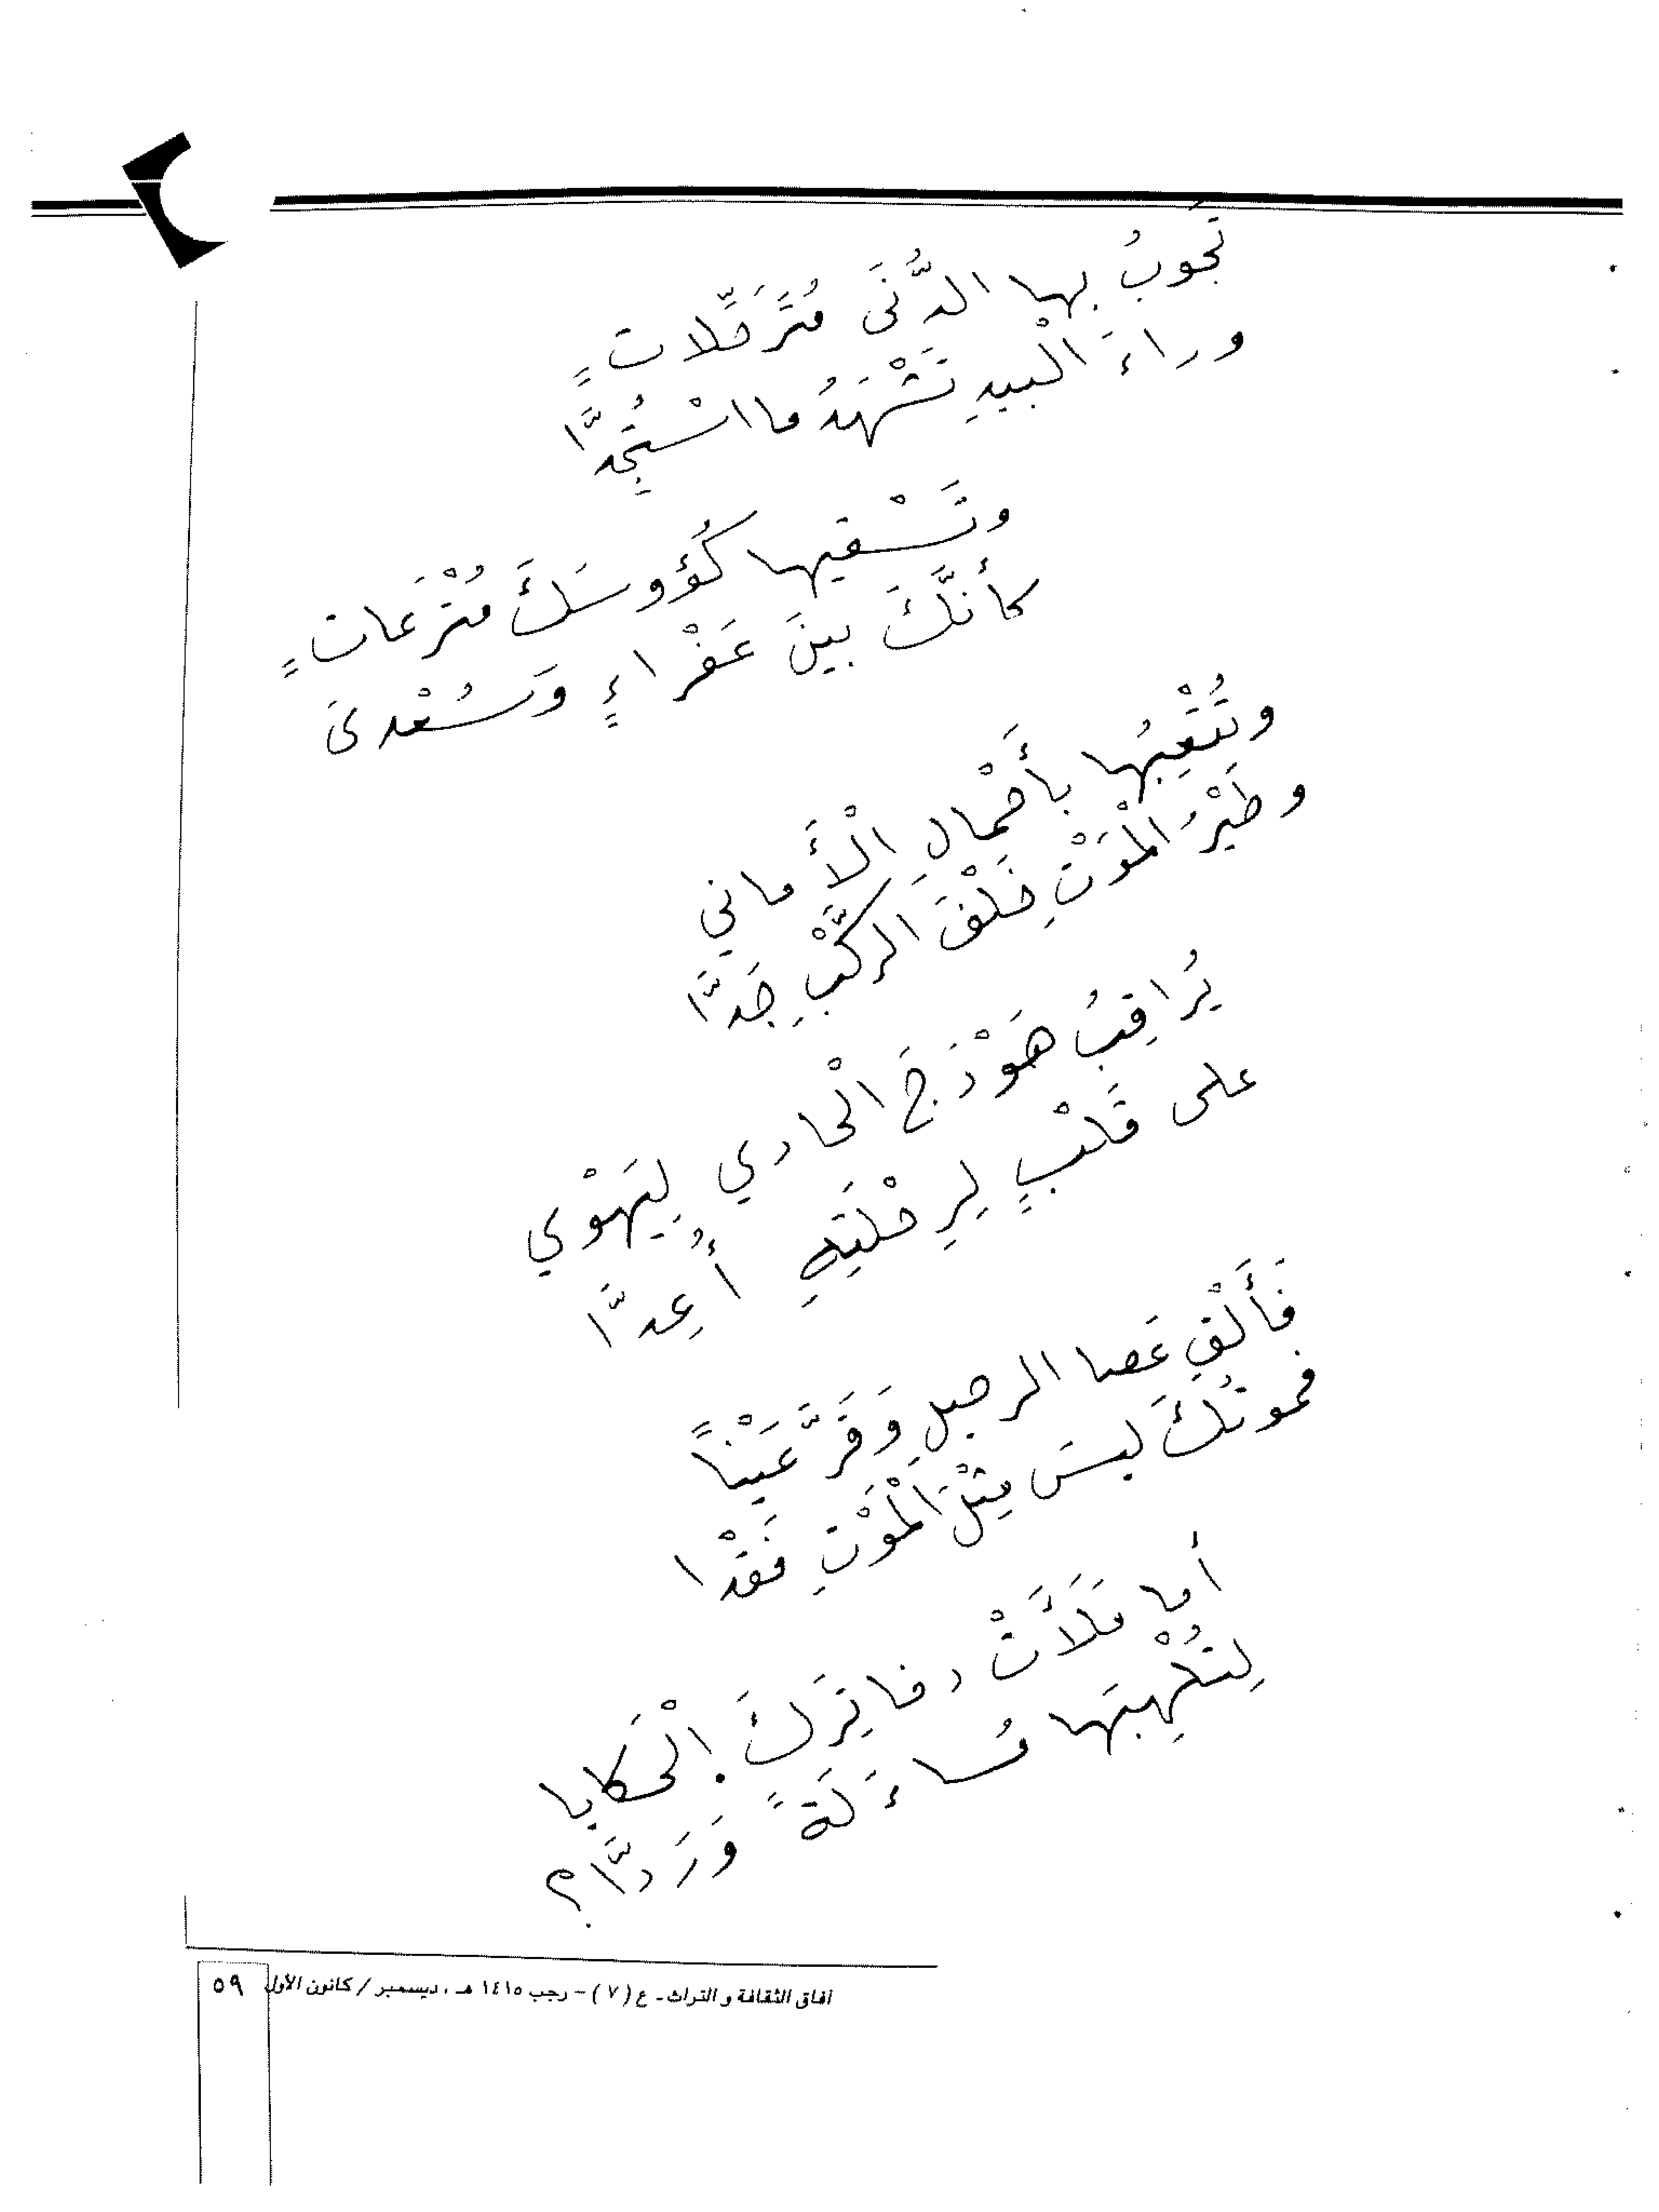 تَجُوبُ بها الدُّنَى مُتَرَحِّلاتٍ
وراءَ الْبيدِ تَشْهَدُ ما اسْتُجِدَّا
وتَسْقيها كُؤوسَكَ مُتْرَعاتٍ
كأنَّكَ بينَ عَفْراءٍ وَسُعْدى
وتُتْعِبُها بأَحْمالِ الْأَماني
وطَيْرُ الْمَوْتِ خَلْفَ الرَّكْبِ جَدَّا
يُراقِبُ هَوْدَجَ الْحادي لِيَهْوي
على قَلْبٍ لِرِحْلَتِهِ أُعِدَّا
فَأَلْقِ عَصا الرحيلِ وَقَرَّ عَيْناً
فموتُكَ ليسَ مِثْلَ الْمَوْتِ فَقْدا
أما مَلَأَتْ دفاتِرَكَ الْحَكايا
لِتُلْهِبَها مُساءَلَةً وَرَدَّا؟
آفاق الثقافة و التراث - ع (٧) - رجب ١٤١٥ هـ ، ديسمبر / كانون الأول ٥٩